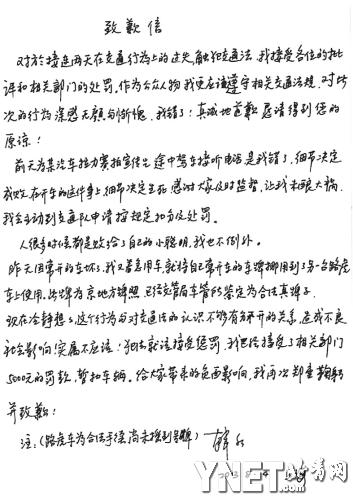 致歉信
对於接连两天在交通行为上的过失,触犯交通法,我接受各位的批
评和相关部门的处罚。作为公众人物我更应该遵守相关交通法规,对此
次的行为深感无颜与惭愧,我错了!真诚地道歉恳请得到您的
原谅!
前天为某汽车拉力赛拍宣传片途中驾车接听电话是我错了,细节决定
成败在开车的这件事上细节决定生死感谢大家及时监督,让我未酿大祸,
我会主动到交通队申请按规定扣分及处罚。
人很多时候都是败给了自己的小聪明,我也不例外。
昨天因常开的车坏了,我又着急用车,就将自己常开车的车牌挪用到了另一台路虎
车上使用,此牌为京地方牌照,已经交管局车管所鉴定为合法真牌子。
现在冷静想想,这个行为与对交通法的认识不够有分不开的关系,造成不良
社会影响,实属不应该!犯法就该接受惩罚,我已经接受了相关部门
5000元的罚款,暂扣车辆。给大家带来的负面影响,我再次郑重鞠躬
并致歉!
注:(路虎车为合法手续尚未报到号牌)
YNET.com